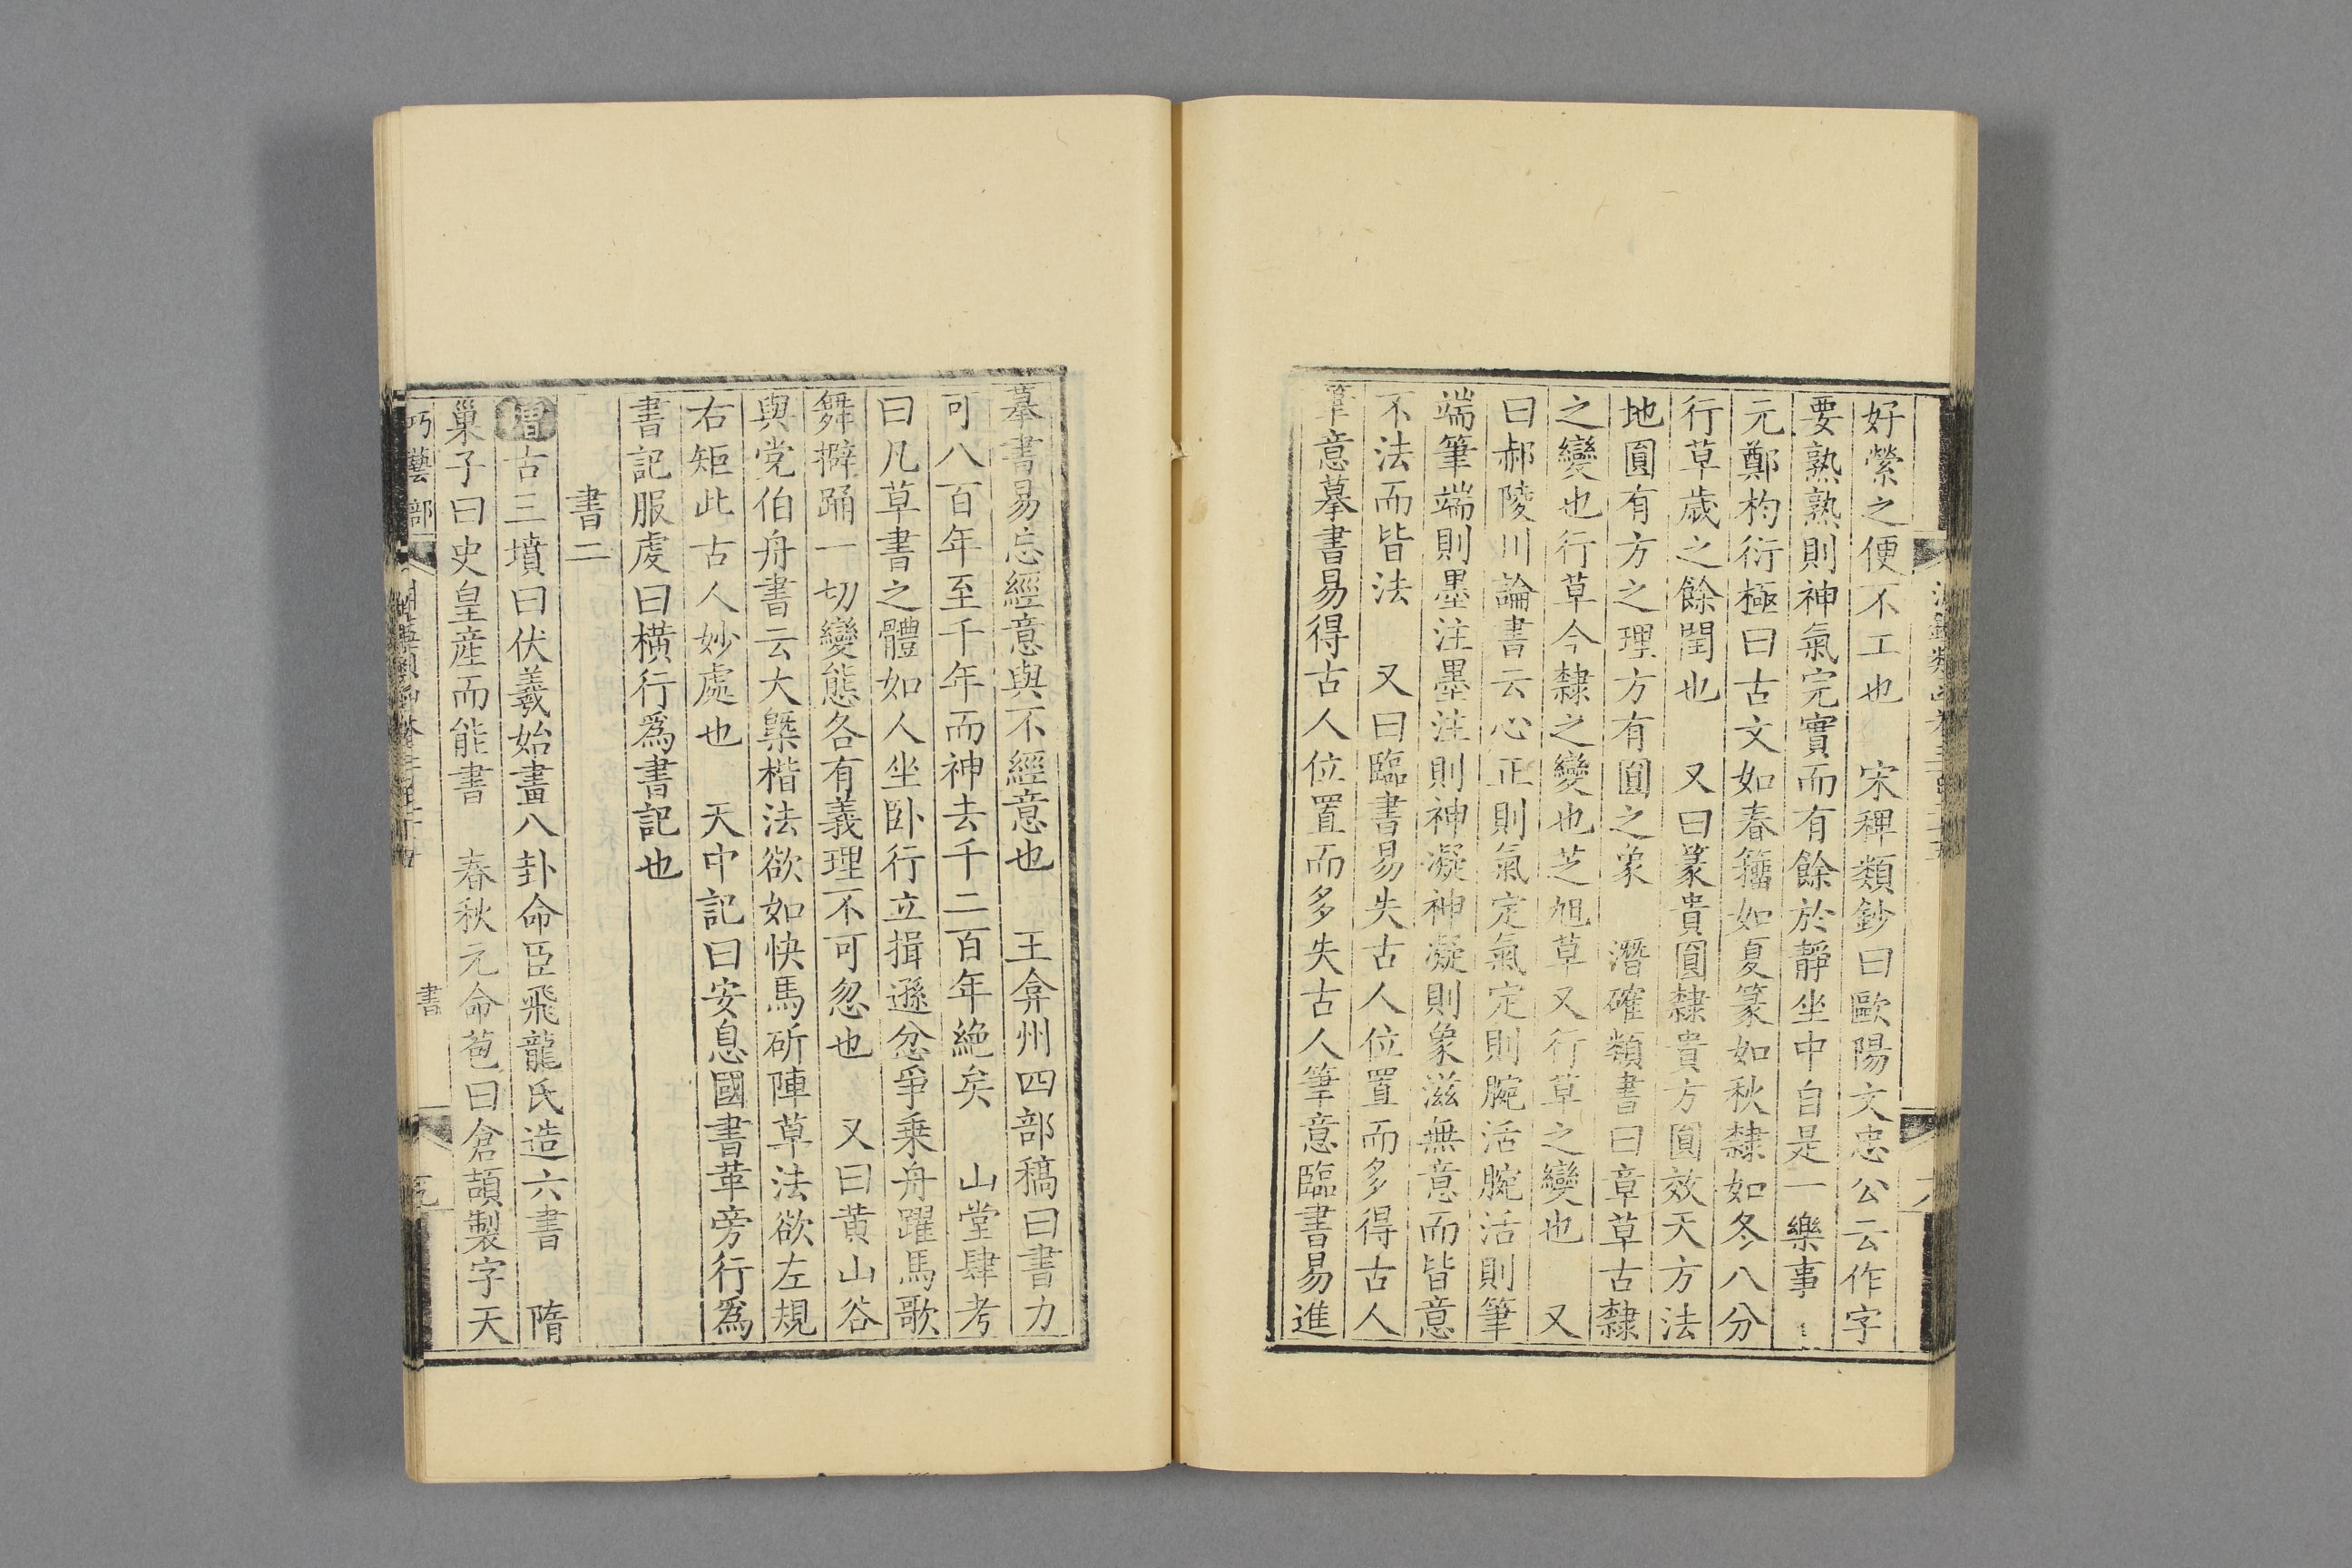 好縈之便不工也　宋稗類鈔曰歐陽文忠公云作字
要熟熟則神氣完實而有餘於靜坐中自是一樂事
元鄭杓衍極曰古文如春籀如夏篆如秋隸如冬八分
行草歲之餘閏也　又曰篆貴圓隸貴方圓效天方法
地圓有方之理方有圓之象　潛確類書曰章草古隸
之變也行草今隸之變也芝旭草又行草之變也　又
曰郝陵川論書云心正則氣定氣定則腕活腕活則筆
端筆端則墨注墨注則神凝神凝則象滋無意而皆意
不法而皆法　又曰臨書易失古人位置而多得古人
筆意摹書易得古人位置而多失古人筆意臨書易進
摹書易忘經意與不經意也　王弇州四部稿曰書力
可八百年至千年而神去千二百年絶矣　山堂肆考
曰凡草書之體如人坐卧行立揖遜忿爭乗舟躍馬歌
舞擗踊一切變態各有義理不可忽也　又曰黄山谷
與党伯舟書云大槩楷法欲如快馬斫陣草法欲左規
右矩此古人妙處也　天中記曰安息國書革旁行爲
書記服虔曰橫行爲書記也
書二
增古三墳曰伏羲始畫八卦命臣飛龍氏造六書　隋
巢子曰史皇産而能書　春秋元命苞曰倉頡製字天
巧藝部
書